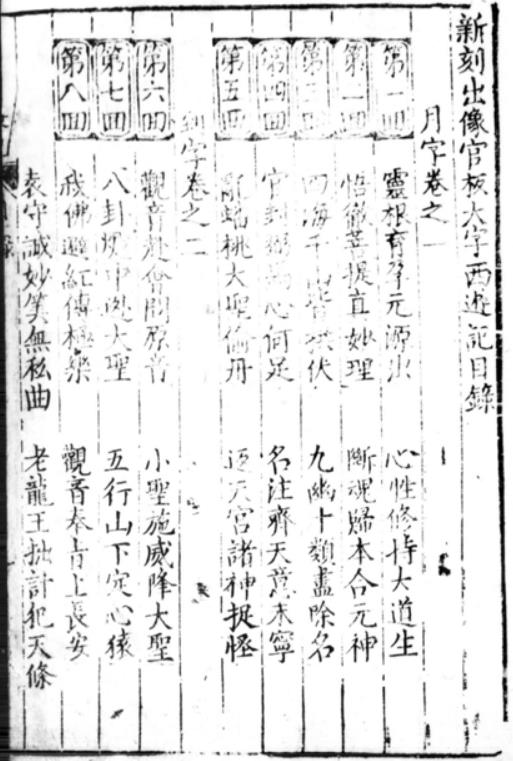 新刻出像官板大字西遊記目錄
月字卷之一
第一回 靈根育孕元源出 心性修持大道生
第二回 悟徹菩提真妙理 斷魂歸本合元神
第三回 四海千山皆拱伏 九幽十類盡除名
第四回 官封弼馬心何足 名注齊天意未寧
第五回 亂蟠桃大聖偷丹 返天宮諸神捉怪
到字卷之二
第六回 觀音赴會問原音 小聖施威降大聖
第七回 八卦爐中逃大聖 五行山下定心猿
第八回 我佛造經傳極樂 觀音奉旨上長安
袁守誠妙筭無私曲 老龍王拙計犯天條